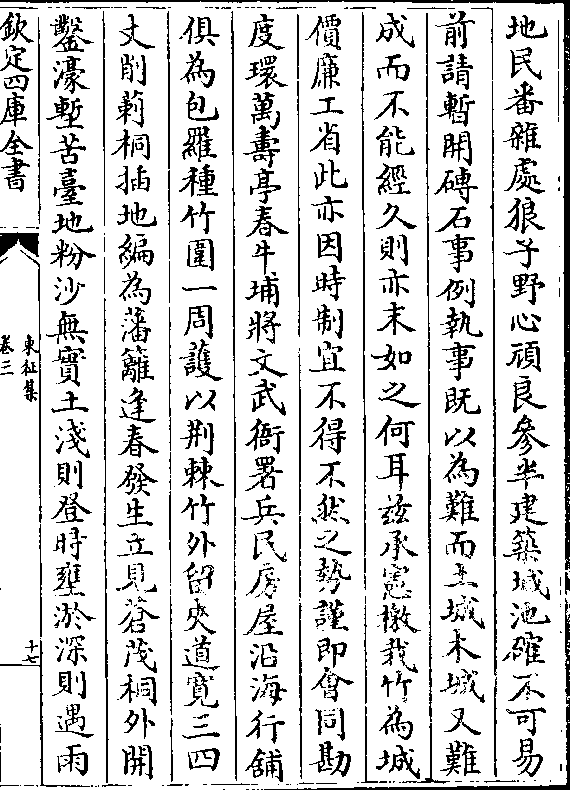 地民番雜處狼子野心頑良參半建築城池確不可易
前請暫開磚石事例執事既以為難而土城木城又難
成而不能經久則亦末如之何耳茲承憲檄栽竹為城
價廉工省此亦因時制宜不得不然之勢謹即會同勘
度環萬壽亭春牛埔將文武衙署兵民房屋沿海行舖
俱為包羅種竹圍一周護以荆棘竹外留夾道寛三四
丈削莿桐插地編為藩籬逢春發生立見蒼茂桐外開
鑿濠塹苦臺地粉沙無實土淺則登時壅淤深則遇雨
欽定四庫全書
東征集
卷三
十七